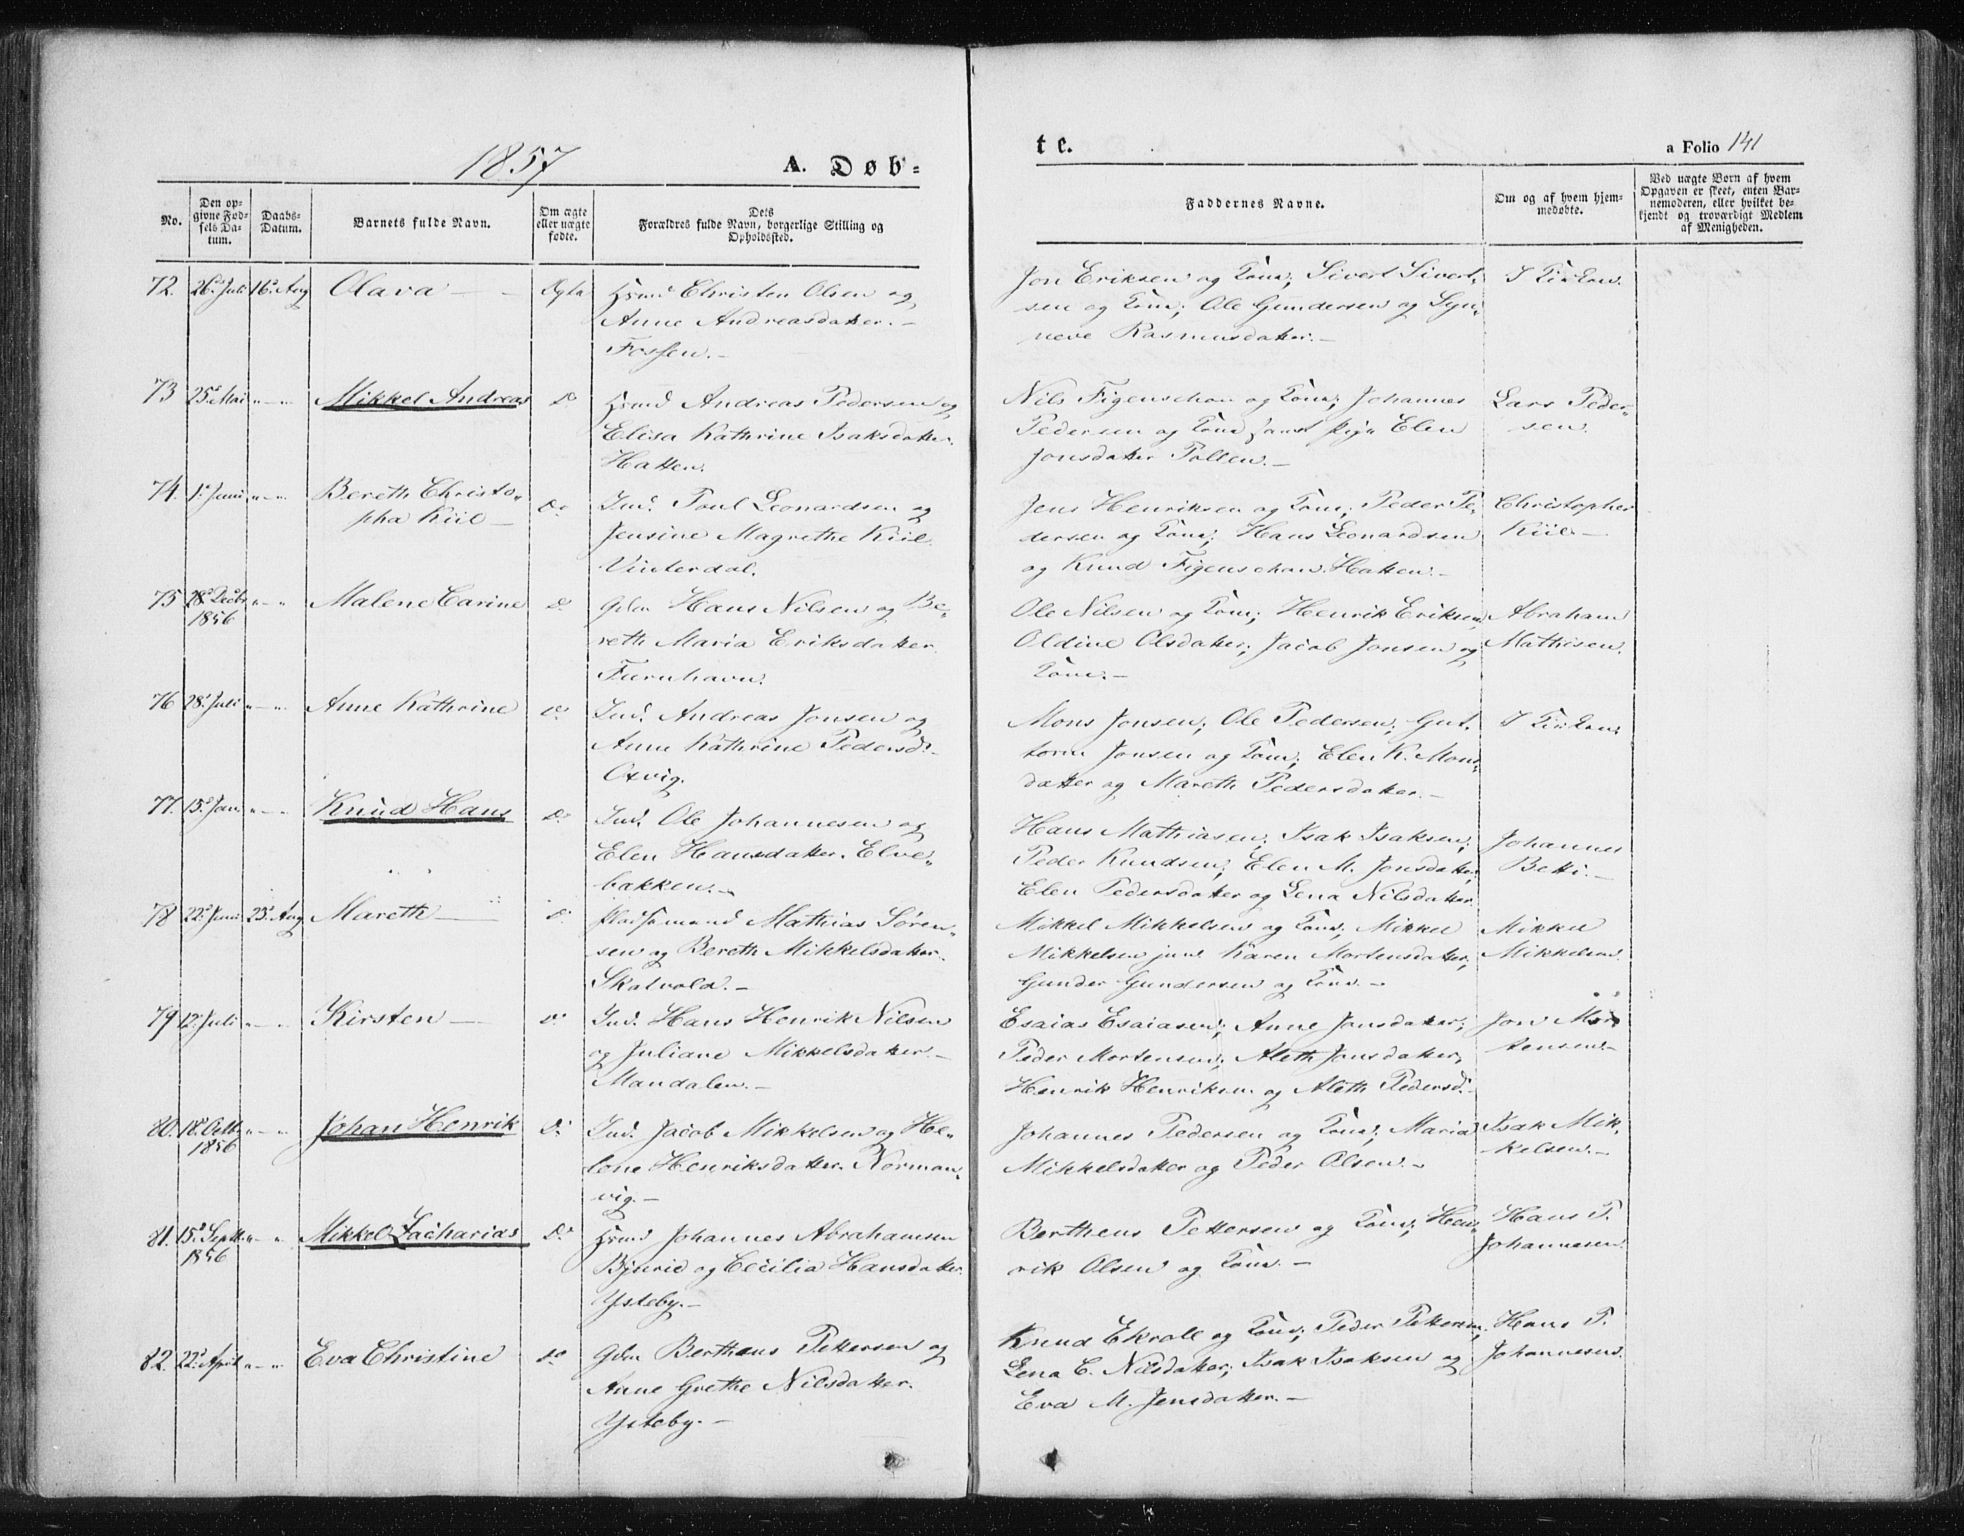 1857
A. Døb-
te.
a Folio 141
No.
Den op-
givne Fød-
sels Da-
tum.
Daabs-
Datum.
Barnets fulde Navn.
Om ægte
eller uægte
fødte.
Dets
Forældres fulde Navn, borgerlige Stilling og
Opholdssted.
Faddernes Navne.
Om og af hvem hjem-
medøbte.
Ved uægte Børn af hvem
Opgaven er skeet, enten Bar-
nemoderen, eller hvilket be-
kjendt og troværdigt Medlem
af Menigheden.
72. 26d Juli 16d Aug Olava — Ægta
Hsmd Christen Olsen og
Anne Andreasdatter. -
Fossen. -
Jon Eriksen og Kone; Sivert Sivert-
sen og Kone; Ole Gundersen og Syn-
neve Rasmusdatter. -
I Kirken.
73 25d Mai " - " Mikkel Andreas Do
Hsmd Andreas Pedersen og
Elisa Kathrine Isaksdatter.
Hatten.
Nils Figenschou og Kone; Johannes
Pedersen og Kone samt pige Elen
Jonsdatter Pollen. -
Lars Peder-
sen.
74. 1d Juni " - " Bereth Christo-
pha Kiil - Do.
Ind. Poul Leonardsen og
Jensine Magrethe Kiil.
Vinterdal.
Jens Henriksen og Kone; Peder Pe-
dersen og Kone; Hans Leonardsen
og Knud Figenschou. Hatten. -
Christopher
Kiil. -
75 28d Decbr " - " Malene Carine Do
1856
Gdm Hans Nilsen og Be-
reth Maria Eriksdatter.
Furuhavn.
Ole Nilsen og Kone; Henrik Eriksen,
Oldine Olsdatter; Jacob Jonsen og
Kone. -
Abraham
Mathisen.
76 28d Juli " - " Anne Kathrine Do.
Ind. Andreas Jonsen og
Anne Kathrine Pedersd. -
Oxvig.
Mons Jonsen; Ole Pedersen; Gut-
torm Jonsen og Kone; Elen K. Mons-
datter og Mareth Pedersdatter. -
I Kirken.
77. 15d " - " Knud Hans Do.
Ind. Ole Johannesen og
Elen Hansdatter. Elve-
bakken. -
Hans Mathiasen; Isak Isaksen;
Peder Knudsen; Elen M. Jonsdatter;
Elen Pedersdatter og Lena Nilsdatter.
Johannes
Betti. -
78 22d Juni 23d Aug Mareth — Do
Pladsmand Mathias Søren-
sen og Bereth Mikkelsdatter.
Skatvold. -
Mikkel Mikkelsen og Kone; Mikkel
Mikkelsen jun. Karen Mortensdatter,
Gunder Gundersen og Kone. -
Mikkel
Mikkelsen.
79 12d Juli " - " Kirsten — Do.
Ind. Hans Henrik Nilsen
og Juliane Mikkelsdatter. -
Mandalen. -
Esaias Esaiasen; Anne Jonsdatter;
Peder Mortensen; Aleth Jonsdatter,
Henrik Henriksen og Aleth Pedersd. -
Jon Mor-
tensen. -
80. 18d Octbr " - " Johan Henrik Do.
1856
Ind. Jacob Mikkelsen og He-
lene Henriksdatter. Norman-
vig. -
Johannes Pedersen og Kone; Maria
Mikkelsdatter og Peder Olsen. -
Isak Mik-
kelsen. -
81. 15d Septb. " - " Mikkel Zacharias Do
1856
Hsmd Johannes Abrahamsen
og Cecilia Hansdatter.
Ysteby. -
Bertheus Pettersen og Kone; Hen-
rik Olsen og Kone. -
Hans P.
Johannesen.
82. 22d April " - " Eva Christine Do
Gdm Bertheus Pettersen og
Anne Grethe Nilsdatter.
Ysteby. -
Knud Ekroll og Kone; Peder Pettersen,
Lena C. Nilsdatter; Isak Isaksen og
Eva M. Jensdatter. -
Hans P.
Johannesen.